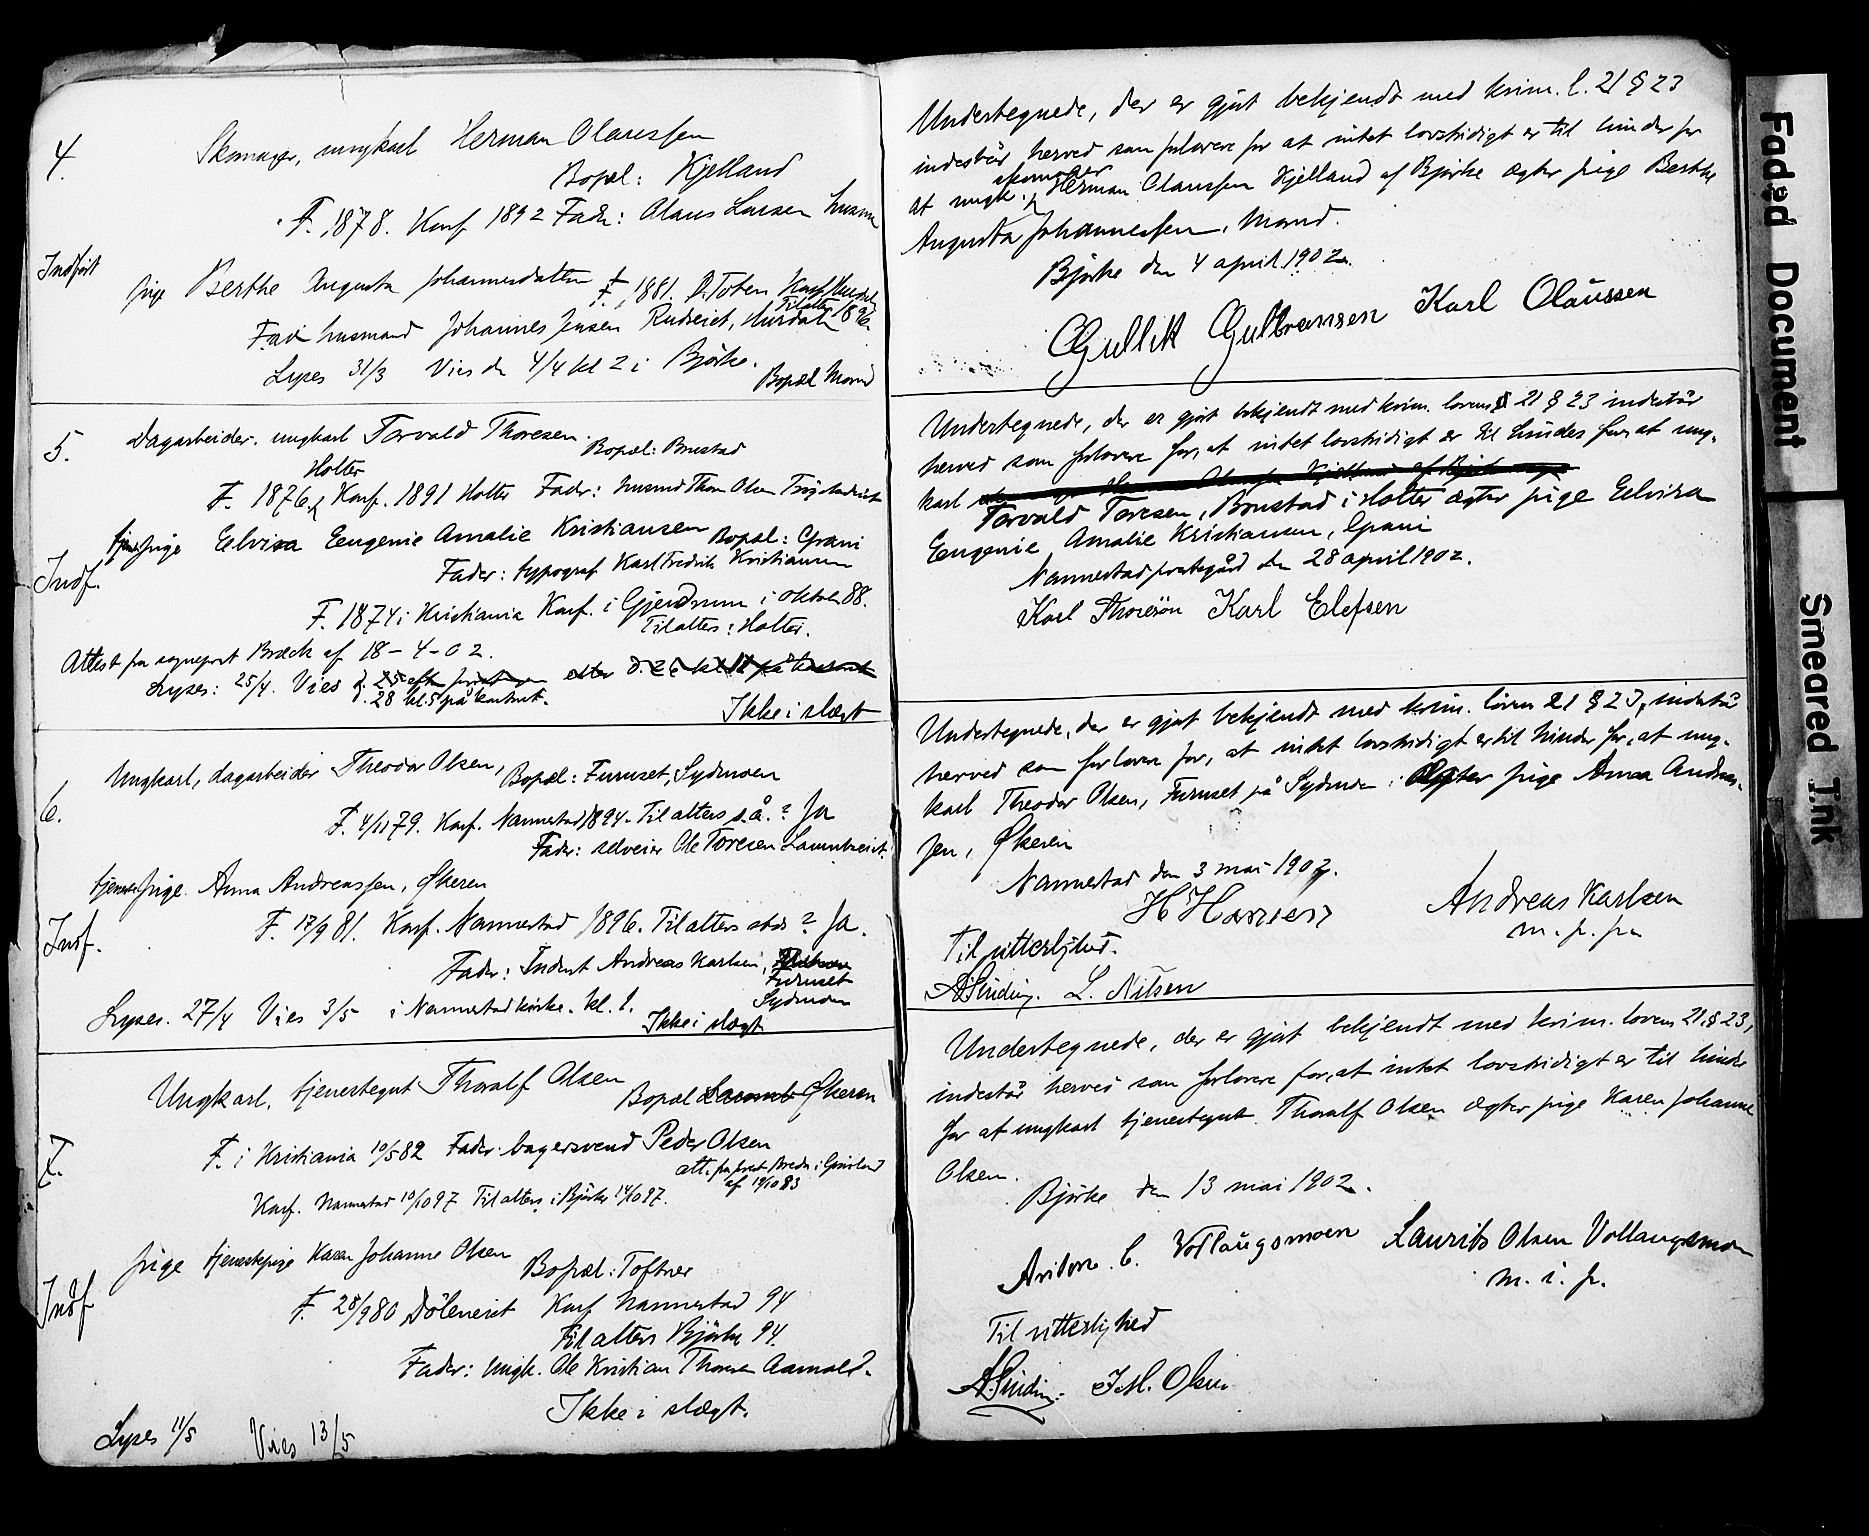 4.
Skomager, ungkarl Herman Olaussen
Bopæl: Kjelland
F. 1878. Konf 1892 Fader: Olaus Larsen husm
Indført
pige Berthe Augusta Johannesdatter F. 1881. Ø. Toten Konf. Hurdal
Tilalters 1896.
Fad husmand Johannes Jensen Rudseiet, Hurdal
Lyses 31/3 Vies den 4/4 kl 2 i Bjørke.
Bopæl Maond
5.
Dagarbeider. ungkarl Torvald Thoresen
Bopæl: Brustad
Holter
F. 1876, Konf. 1891 Holter Fader: husmd Thore Olsen
tjenestepige Eelvira Eeugenie Amalie Kristiansen Bopæl: Grani
Fader: typograf Karl Fredrik Kristiansen
Indf.
F. 1874 i Kristiania Konf. i Gjerdrum i oktober 88.
Til alters: Holter.
Attest fra sogneprest Bræck af 18-4-02.
Lyses: 25/4. Vies d. 25 efter eller d. 26 kl 11 på kontoret
d. 28 kl. 5 på kontoret.
Ikke i slægt
6.
Ungkarl, dagarbeider Theodor Olsen, Bopæl: Furuset, Sydmoen
F. 4/11 79. Konf. Nannestad 1894. Til alters s.å.? Ja
Fader: selveier Ole Toresen
tjenestepige. Anna Andreassen, Økeren
F. 17/9 81. Konf. Nannestad 1896. Til alters ? Ja.
Indf.
Fader: Inderst Andreas Karlsen,
Furuset
Sydmoen
Lyses. 27/4 Vies 3/5 i Nannestad kirke. kl. 1.
Ikke i slægt
7.
Ungkarl, tjenestegut Thoralf Olsen
Bopæl Økeren
F. i Kristiania 10/5 82 Fader: bagersvend Peder Olsen
att. fra prest Bredo i Grønland
af 19/10 83
Konf. Nannestad 10/10 97 Til alters i Bjørke 14/10 97.
pige tjenestepige Karen Johanne Olsen
Bopæl: Toftner
Indf
F. 28/9 80 Døleneiet Konf Nannestad 94
Til alters Bjørke 94.
Fader: Ungk. Ole Kristian Thoresen Aamold.
Ikke i slægt.
Lyses 11/5 Vies 13/5
Undertegnede, der er gjort bekjendt med krim. l. 21 § 23
indestår herved som forlovere for at intet lovstridigt er til hinder for
skomager
at ungk. Herman Olaussen Kjelland af Bjørke ægter pige Berthe
Augusta Johannessen, Maond.
Bjørke den 4 april 1902.
Gullik Gulbransen Karl Olaussen
Undertegnede, der er gjort bekjendt med krim. lovens 21 § 23 indestår
herved som forlovere for, at intet lovstridigt er til hinder for, at ung-
karl
Torvald Toresen, Brustad i Holter ægter pige Eelvira
Eeugenie Amalie Kristiansen, Grani
Nannestad prestegård den 28 april 1902.
Karl Thoresøn Karl Elefsen
Undertegnede, der er gjort bekjendt med krim. loven 21 § 23, indestår
herved som forlovere for, at intet lovstridigt er til hinder for, at ung-
karl Theodor Olsen, Furuset på Sydmoen ægter pige Anna Andreas-
sen, Økeren
Nannestad den 3 mai 1902.
H Hansen Andreas Karlsen
m. p. p.
Til vitterlighed.
A Sinding. L. Nilsen
Undertegnede, der er gjort bekjendt med krim. lovens 21. § 23,
indestår herved som forlovere for, at intet lovstridigt er til hinder
for at ungkarl tjenestegut Thoralf Olsen ægter pige Karen Johanne
Olsen.
Bjørke den 13 mai 1902.
Anton. C. Votlaugsmoen Laurits Olsen Vollaugsmoen
m. i. p.
Til vitterlighed
A. Sinding. J. M. Olsen
Faded Document
Smeared Ink